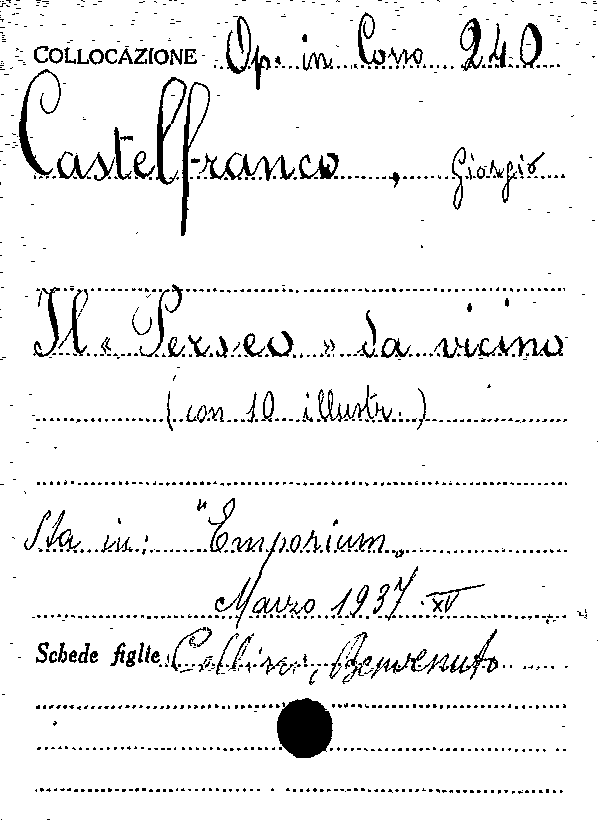 COLLOCAZIONE Op. in Corso 240
Castelfranco, Giorgio
Il « Perseo » da vicino
(con 10 illustr.)
Sta in: "Emporium„
Marzo 1937-XV
Schede figlie Cellini, Benvenuto